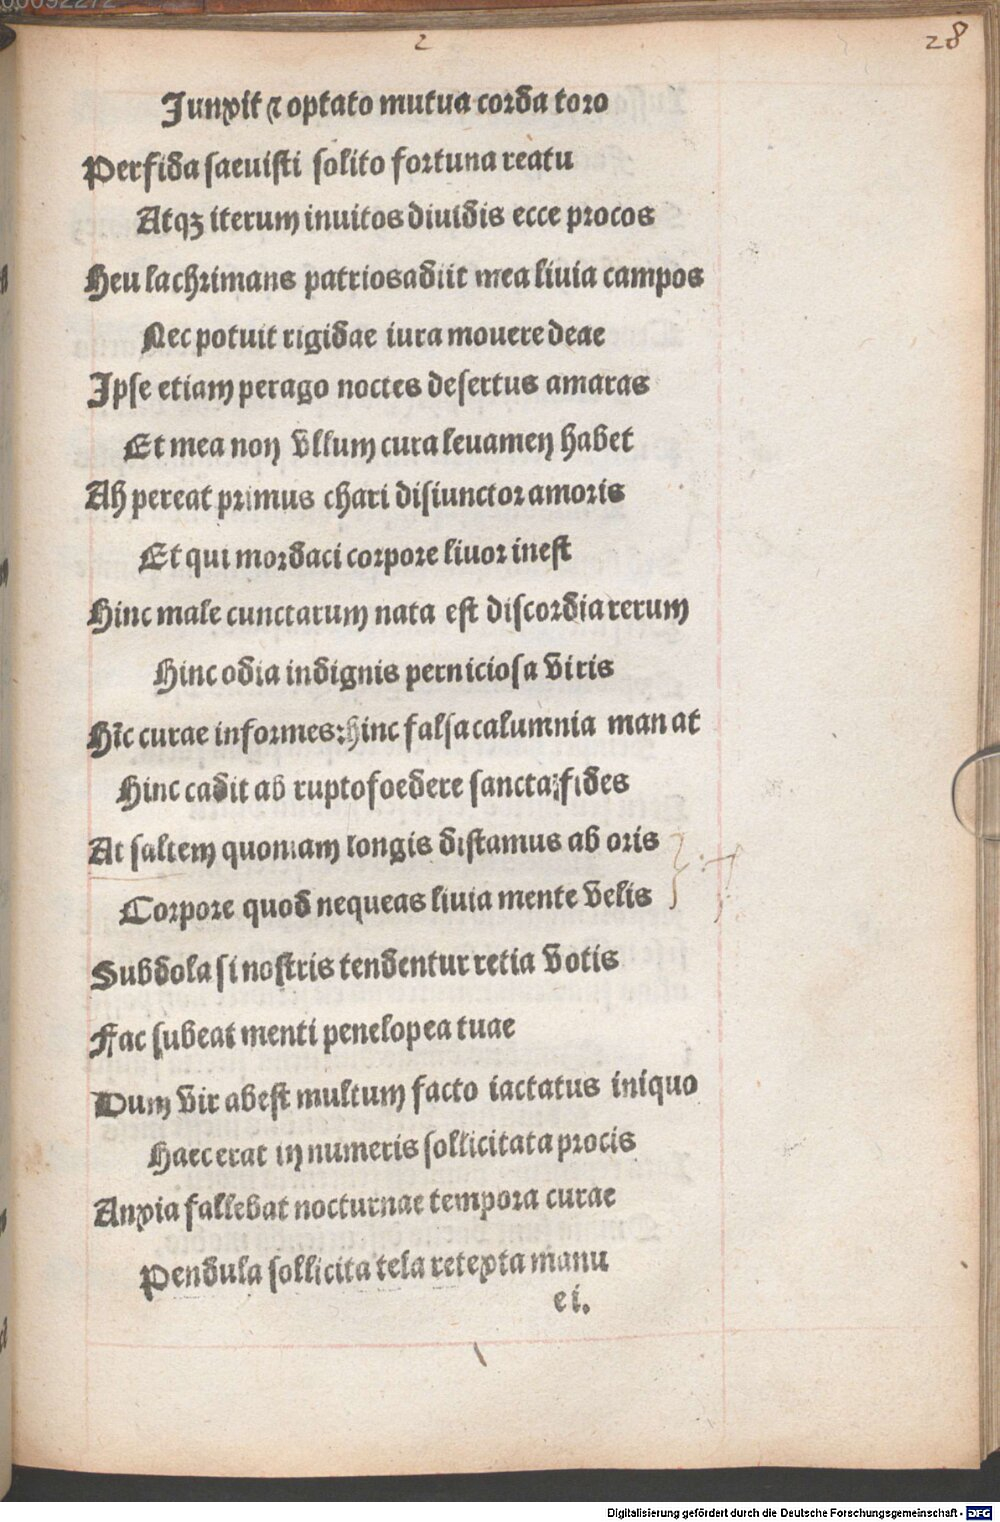 2 28
Junxit ⁊ optato mutua corda toro
Perfida saeuisti solito fortuna reatu
Atqꝫ iterum inuitos diuidis ecce procos
Heu lachrimans patrios adiit mea liuia campos
Nec potuit rigidae iura mouere deae
Ipse etiam perago noctes desertus amaras
Et mea non vllum cura leuamen habet
Ah pereat primus chari disiunctor amoris
Et qui mordaci corpore liuor inest
Hinc male cunctarum nata est discordia rerum
Hinc odia indignis perniciosa viris
Hīc curae informes: hinc falsa calumnia manat
Hinc cadit ab rupto foedere sancta fides
At saltem quoniam longis distamus ab oris
Corpore quod nequeas liuia mente velis
Subdola si nostris tendentur retia votis
Fac subeat menti penelopea tuae
Dum vir abest multum facto iactatus iniquo
Haec erat in numeris sollicitata procis
Anxia fallebat nocturnae tempora curae
Pendula sollicita tela retexta manu
ei.
Digitalisierung gefördert durch die Deutsche Forschungsgemeinschaft - DFG